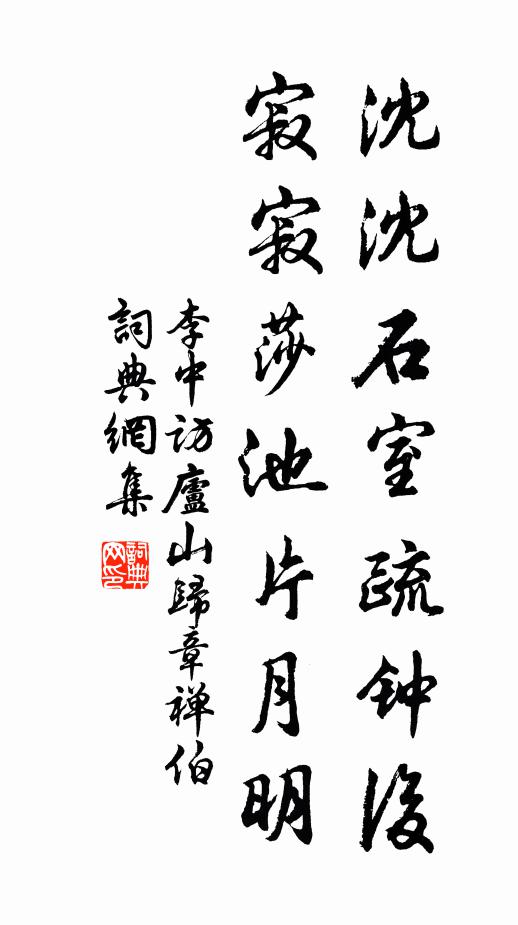 沈沈石室疏钟後
寂寂莎池片月明
李中访廬山歸章禅伯
詞典網集
詞典网印